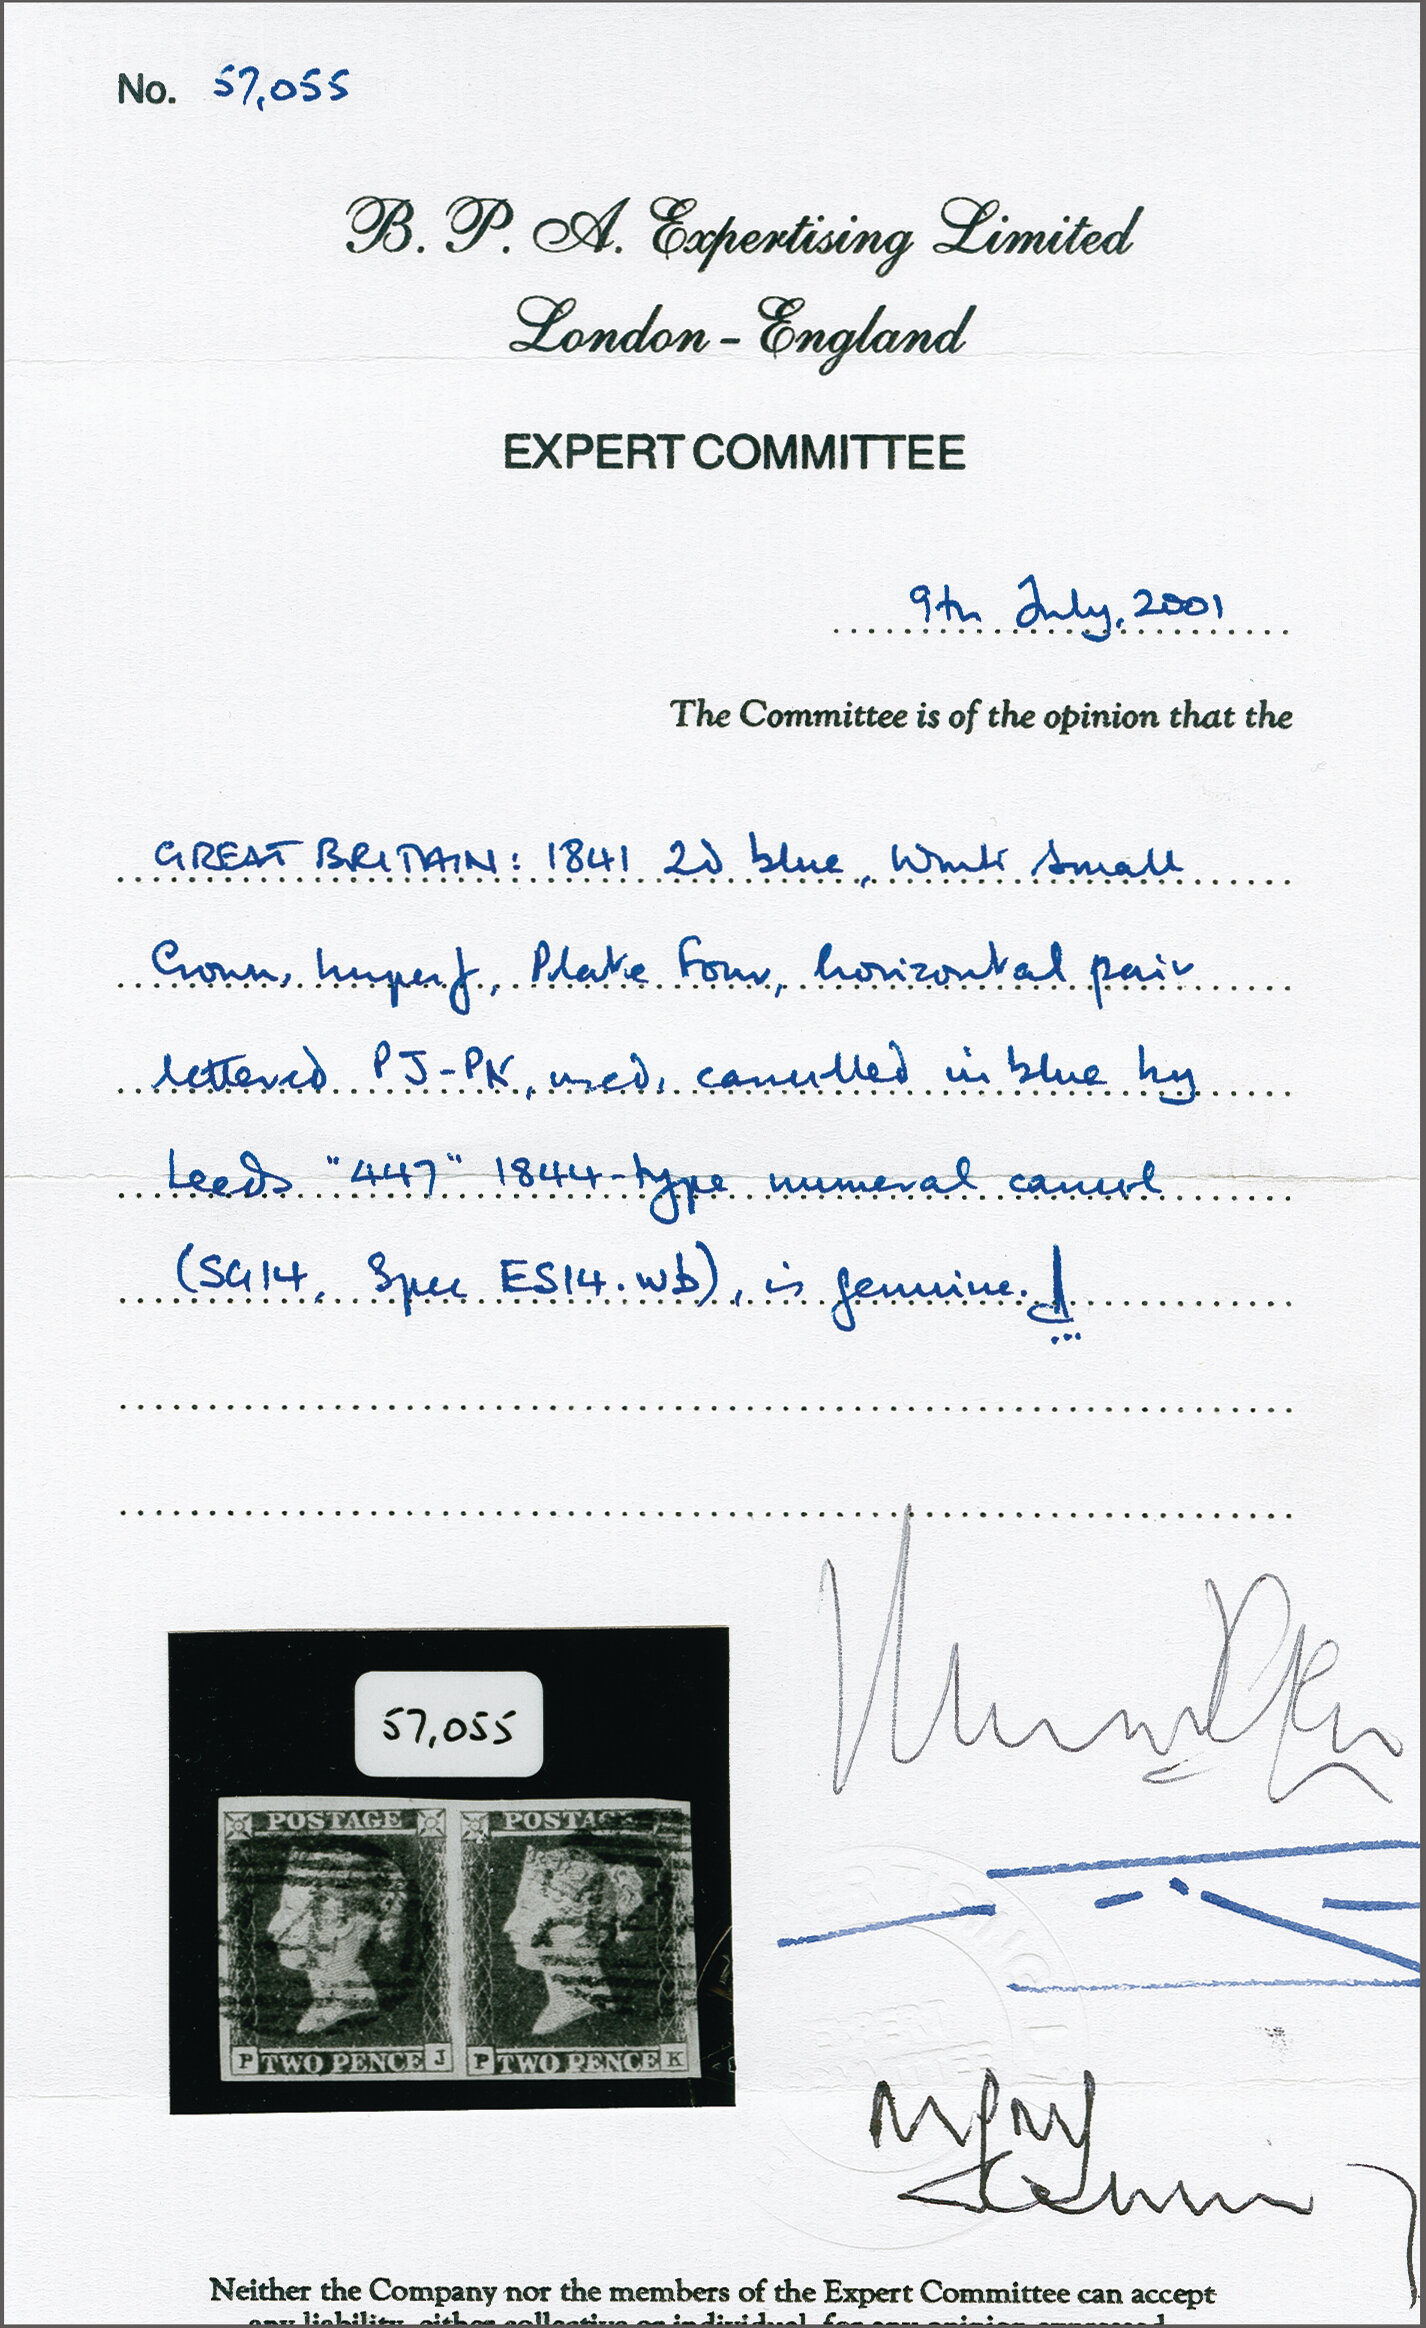 No. 57,055
B. P. A. Expertising Limited
London - England
EXPERT COMMITTEE
9th July, 2001
The Committee is of the opinion that the
GREAT BRITAIN: 1841 2d blue, Wmk Small
Crown, Imperf, Plate Four, horizontal pair
lettered PJ-PK, used, cancelled in blue by
Leeds "447" 1844-type numeral cancel
(SG14, Spec ES14.wb), is genuine.
57,055
POSTAGE POSTAGE
P TWO PENCE J P TWO PENCE K
Neither the Company nor the members of the Expert Committee can accept
any liability, either collective or individual, for any opinion expressed